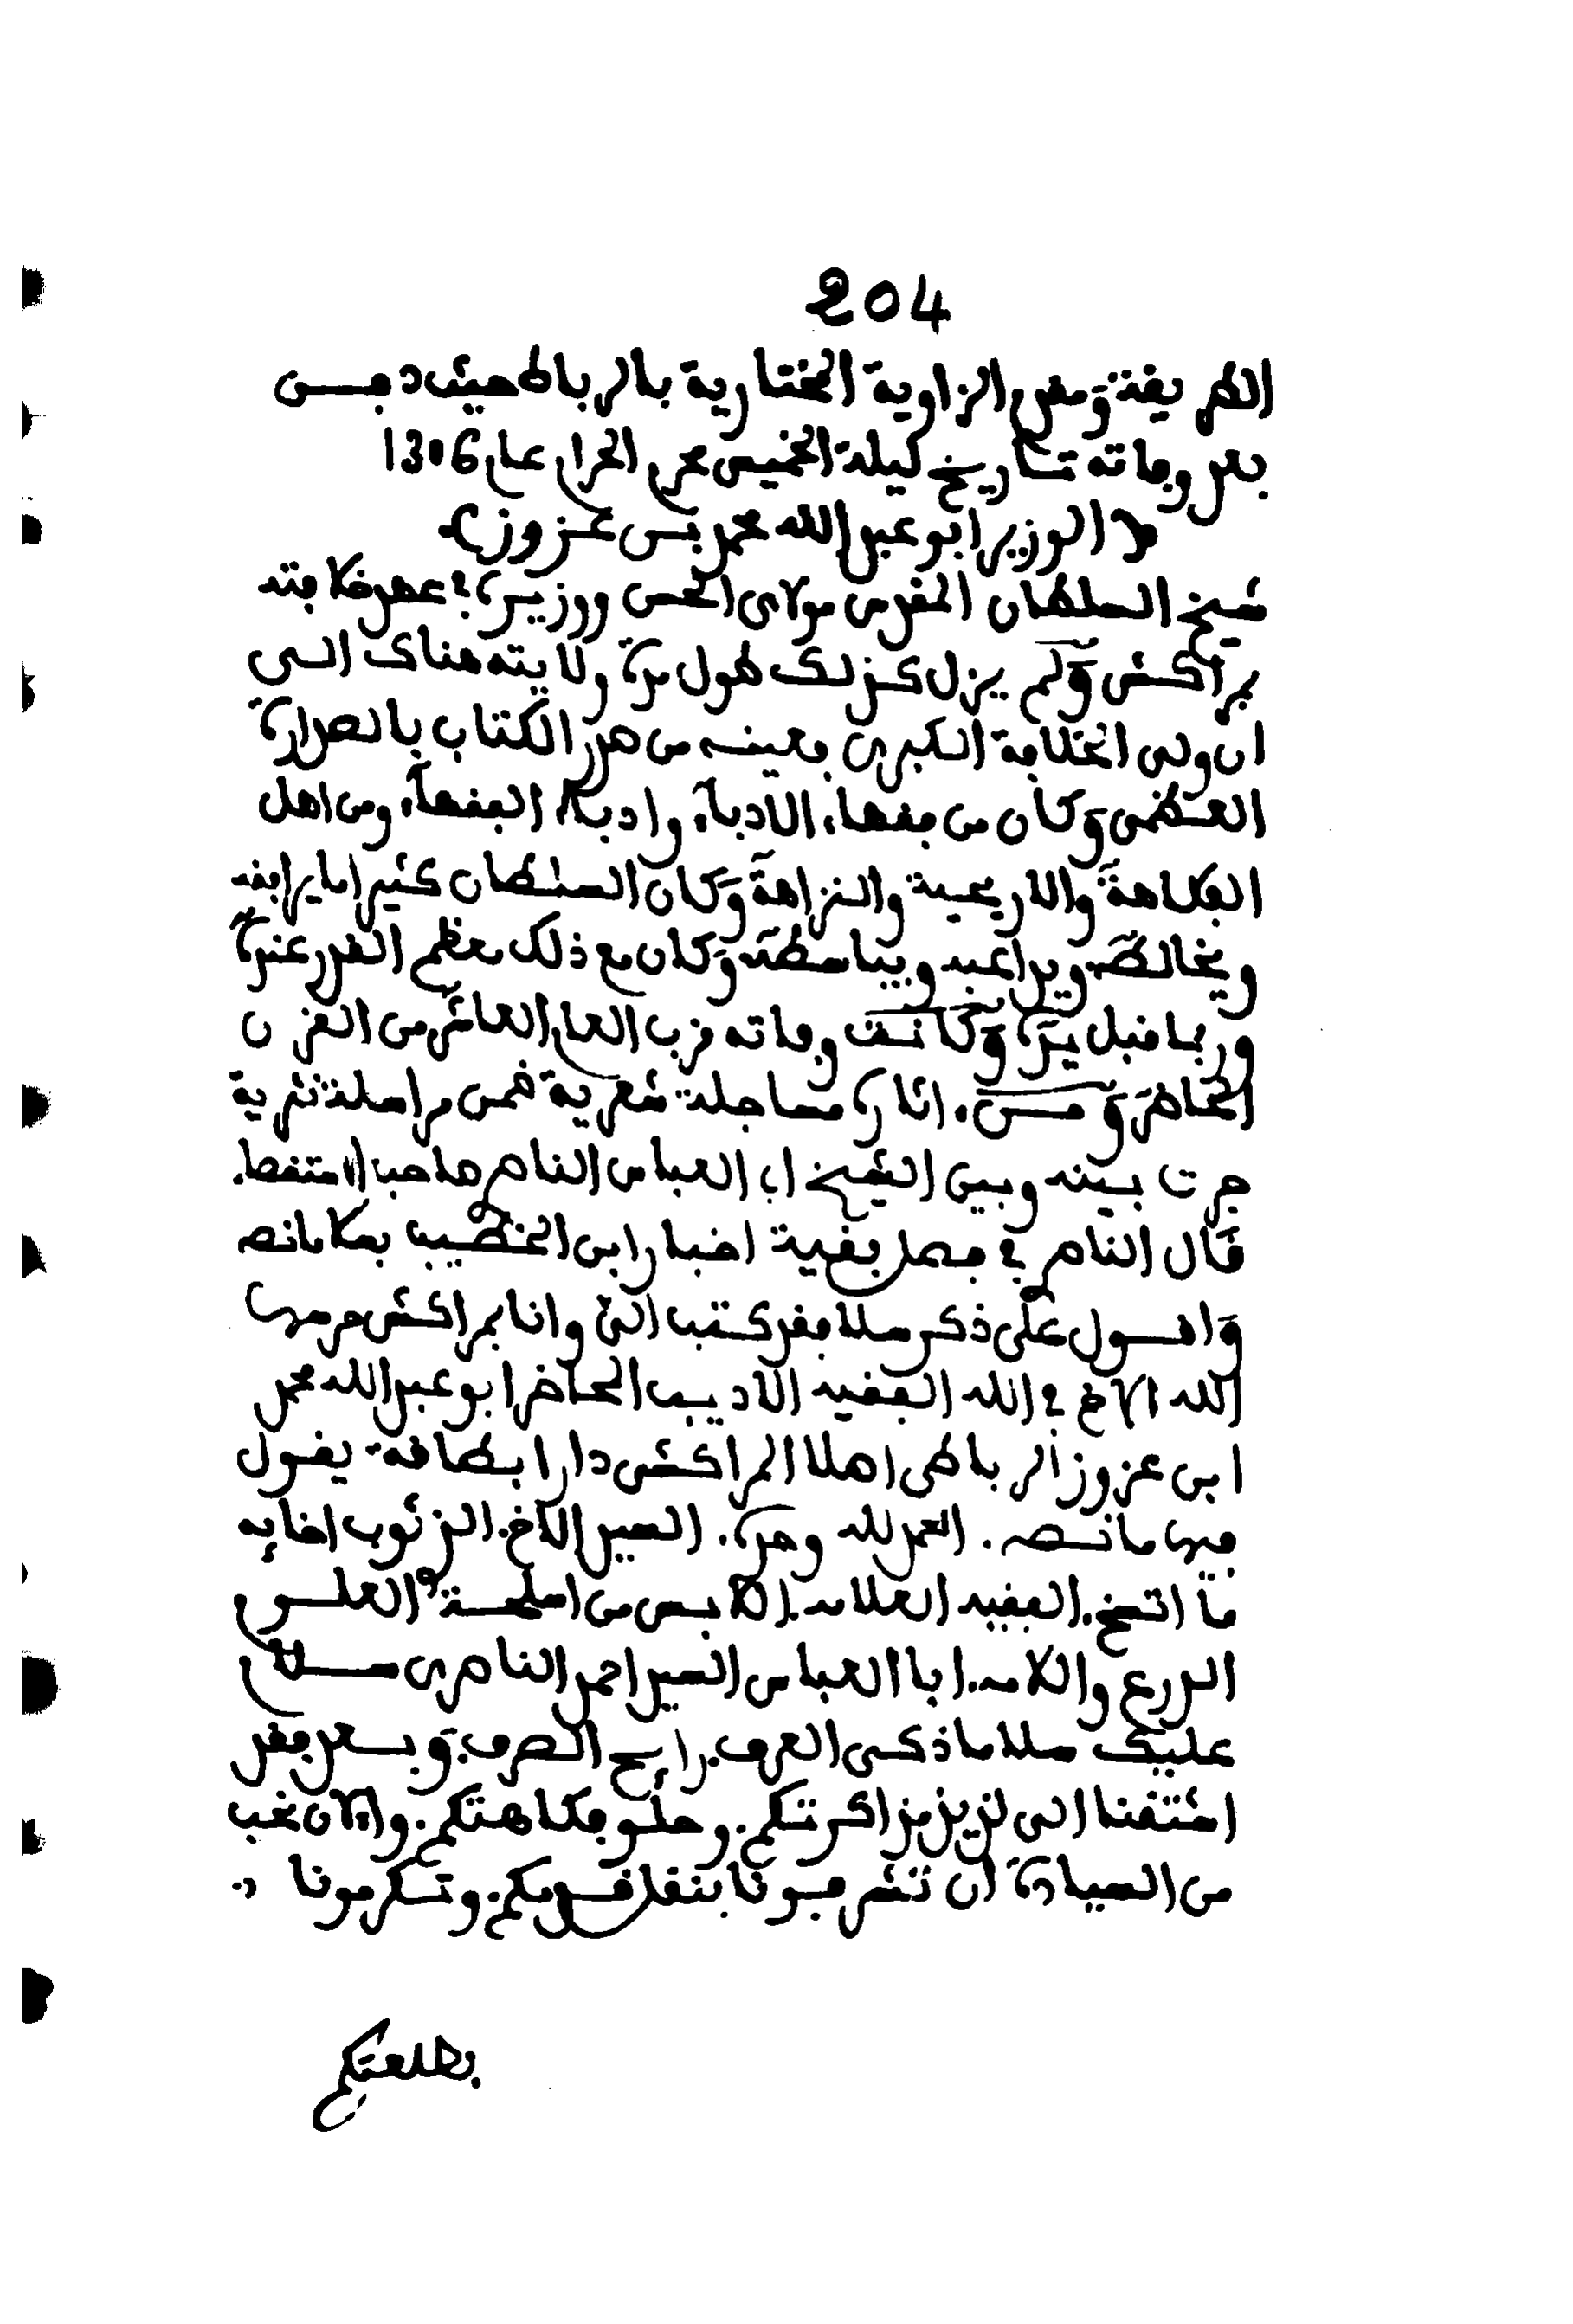 204
الطريقة ومقر الزاوية المختارية بالرباط حيث دفن
بعد وفاته بتاريخ ليلة الخميس محرم الحرام عام 1306
(الوزير ابو عبد الله محمد بن عزوز)
شيخ السلطان المقدس مولاى الحسن ووزيره في عهد خلافته
بمراكش ولم يزل كذلك طول مدة ولايته هناك الى
ان ولى الخلافة الكبرى فعينه من هزر الكتاب بالصدارة
العظمى وكان من فقهاء الادباء وادباء الفقهاء ومن اهل
الفكاهة والاريحية والنزاهة وكان السلطان كثيرا ما يرافقه
ويخالطه ويداعبه ويباسطه وكان مع ذلك معظم القدر عنده
وربما قبل يده وكانت وفاته قرب العام العاشر من القرن
الحاضر ومن آثاره مساجلة شعرية ضمن مراسلة نثرية
جرت بينه وبين الشيخ ابى العباس الناصرى صاحب الاستقصا.
قال الناصرى في فصل بقية اخبار ابن الخطيب بسلا ما نصه
واقول على ذكر سلا فقد كتب الىّ وانا بمراكش حرسها
الله الاخ في الله الفقيه الاديب الحاضر ابو عبد الله محمد
ابن عزوز الرباطى اصلا المراكشى دارا بطاقة يقول
فيها ما نصه. الحمد لله وحده. السيد الاخ. الذ ثوب اخايه
ما اتسخ. الفقيه العلامه. اللابس من اسلحة العلوم
الدرع واللامه. ابا العباس السيد احمد الناصرى سلام
عليك سلاما ذكى العرف. رابح الصرف. وبعد فقد
اشتقنا الى لذيذ مذاكرتكم. وحلو فكاهتكم. والان نحب
من السيادة ان تشرفونا بنقل قدمكم. وتكرمونا
بطلعتكم